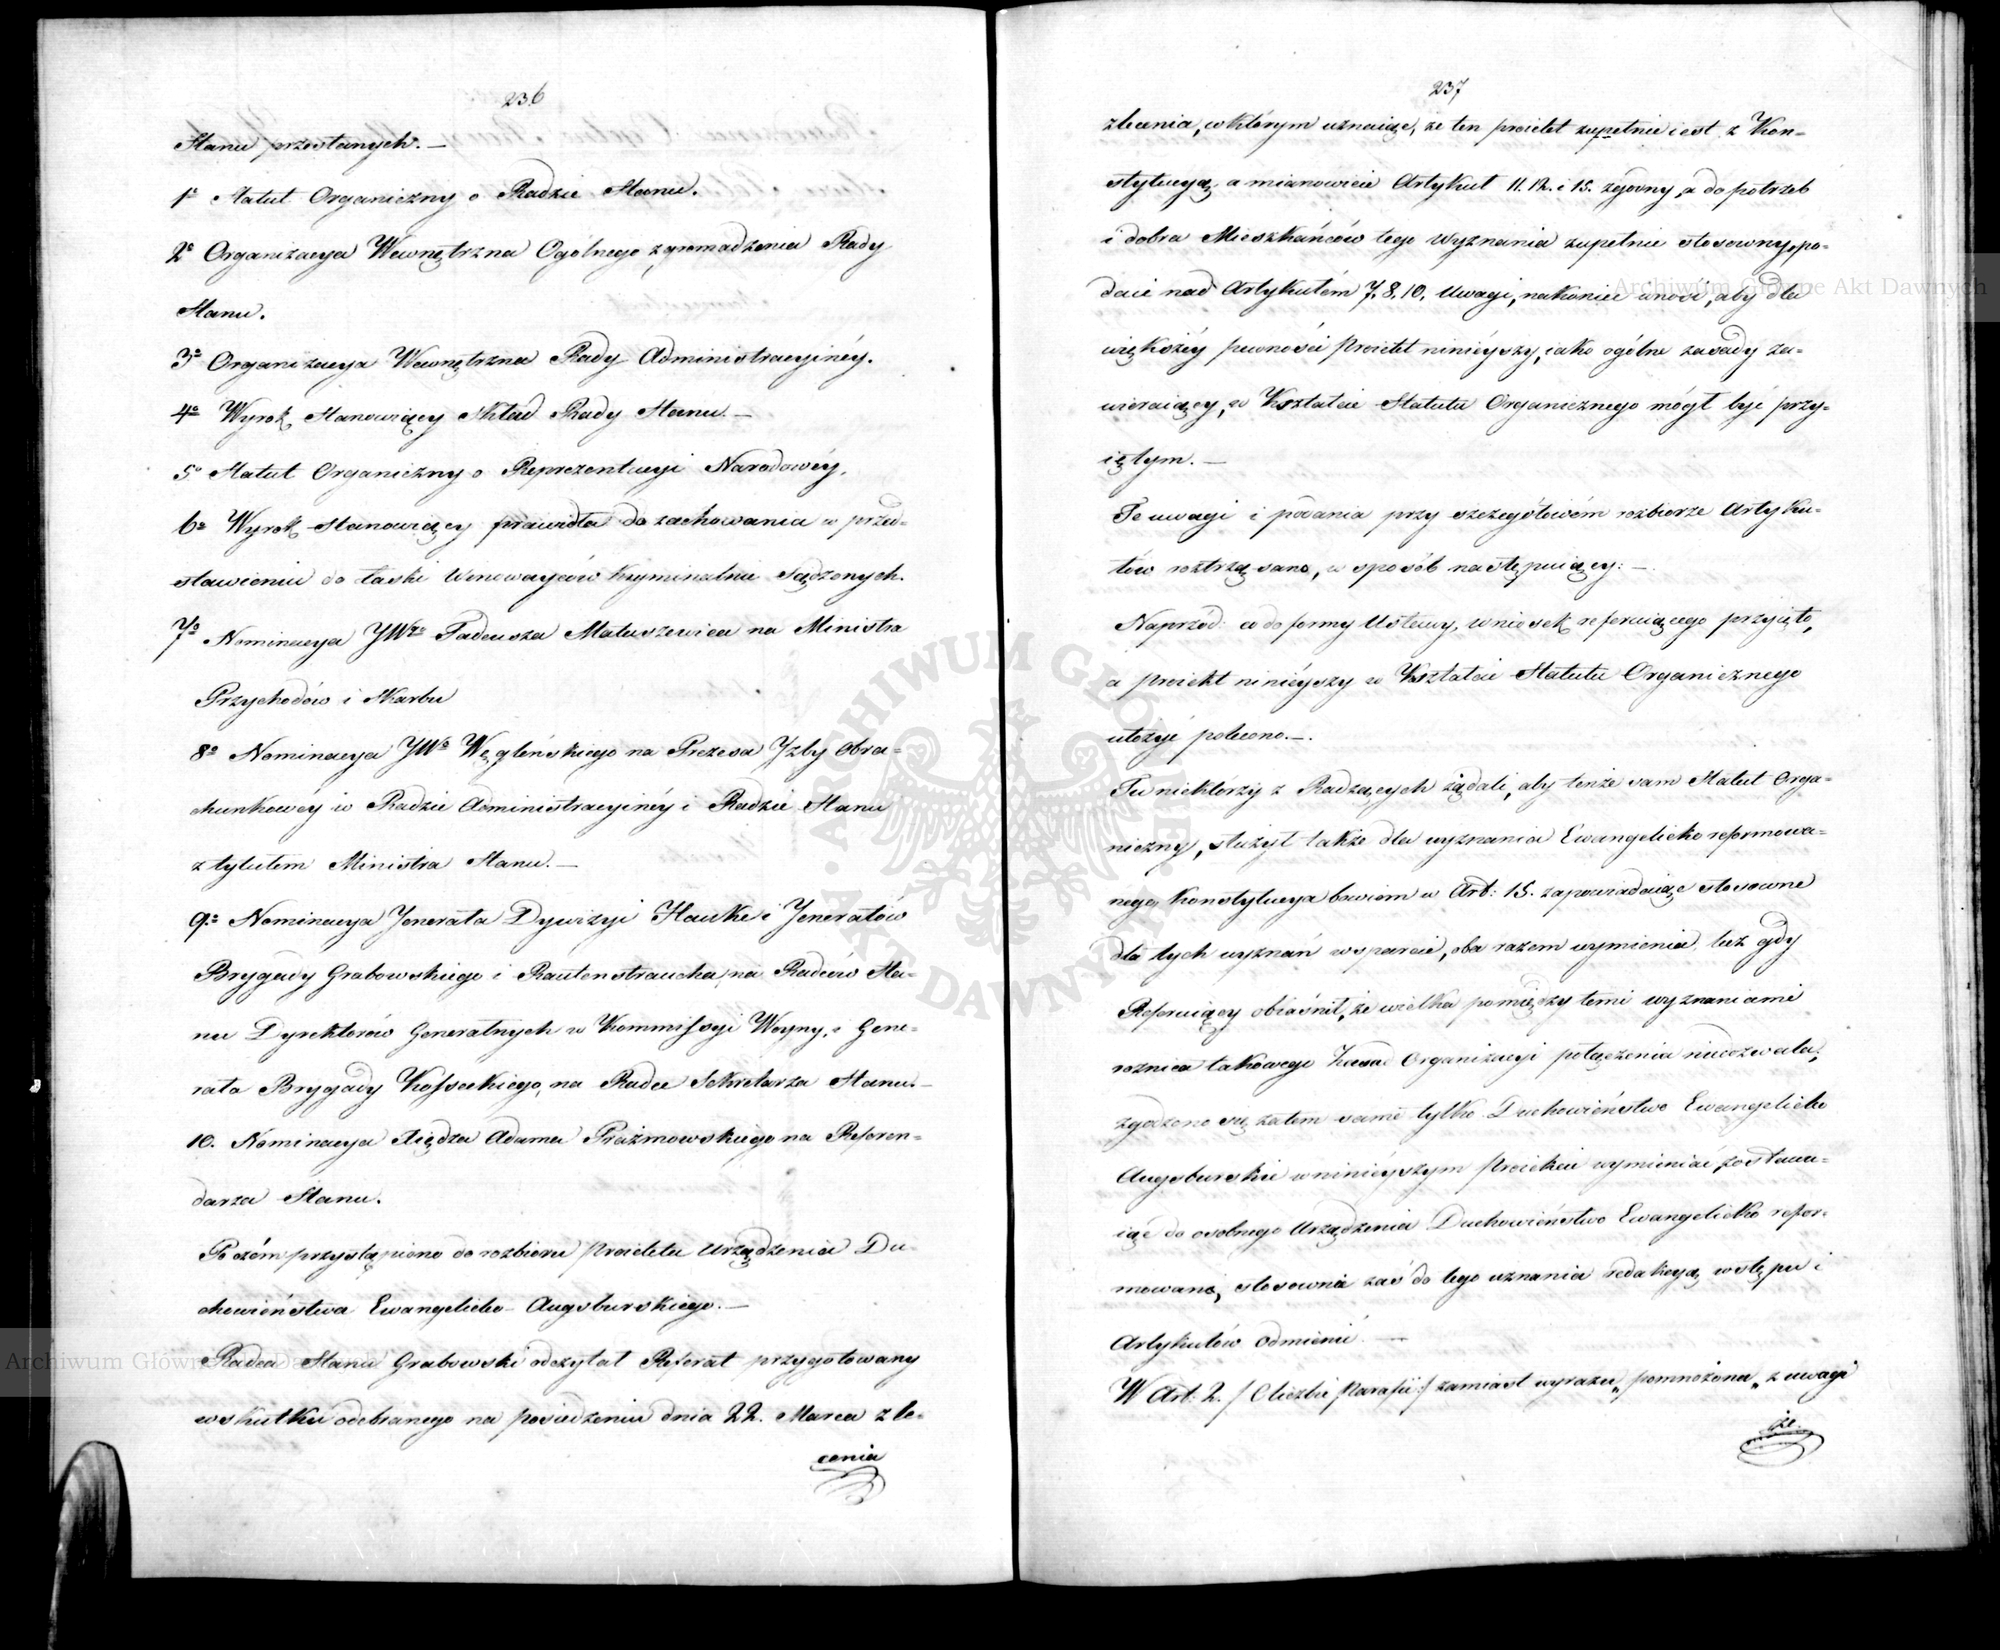 236
Stanu przesłanych. —
1o Statut Organiczny o Radzie Stanu.
2o Organizacya Wewnętrzna Ogólnego zgromadzenia Rady
Stanu.
3o Organizacya Wewnętrzna Rady Administracyinéy.
4o Wyrok Stanowiący Skład Rady Stanu. —
5o Statut Organiczny o Reprezentacyi Narodowéy.
6o Wyrok stanowiący prawidła do zachowania w przed-
stawieniu do łaski Winowayców Kryminalnie Sądzonych.
7o Nominacya JWgo Tadeusza Matuszewica na Ministra
Przychodów i Skarbu
8o Nominacya JWo Węgleńskiego na Prezesa Jzby Obra-
chunkowéy w Radzie Administracyinéy i Radzie Stanu
z tytułem Ministra Stanu. —
9o Nominacya Jenerała Dywizyi Hauke i Jenerałów
Brygady Grabowskiego i Rautenstraucha, na Radców Sta-
nu Dyrektorów Generalnych w Kommissyi Woyny, i Gene-
rała Brygady Kosseckiego, na Radcę Sekretarza Stanu. —
10. Nominacya Xiędza Adama Prażmowskiego na Referen-
darza Stanu.
Poczém przystąpiono do rozbioru Proiektu Urządzenia Du-
chowieństwa Ewangelicko-Augsburskiego. —
Radca Stanu Grabowski odczytał Referat przygotowany
w skutku odebranego na posiedzeniu dnia 22. Marca zle-
cenia
237
zlecenia, w którym uznaiąc, że ten proiekt zupełnie iest z Kon-
stytucyą a mianowicie Artykuł 11. 12. i 15. zgodny, a do potrzeb
i dobra Mieszkańców tego Wyznania zupełnie stosowny, po-
daie nad Artykułém 7, 8, 10, Uwagi, nakoniec wnosi, aby dla
większéy pewności Proiekt ninieyszy, iako ogólne zasady za-
wieraiący, w Kształcie Statutu Organicznego mógł być przy-
iętym. —
Te uwagi i podania przy szczegółowém rozbiorze Artyku-
łów roztrząsano, w sposób następuiący: —
Naprzód: co do formy Ustawy, wniosek referuiącego przyięto,
a proiekt ninieyszy w Kształcie Statutu Organicznego
ułożyć polecono. —.
Tu niektórzy z Radzących żądali, aby tenże sam Statut Orga-
niczny, służył także dla wyznania Ewangelicko reformowa-
nego, Konstytucya bowiem w Art: 15. zapowiadaiąc stosowne
dla tych wyznań wsparcie, oba razem wymienia, lecz gdy
Referuiący obiaśnił, że wielka pomiędzy temi wyznaniami
roznica takowego Zasad Organizacyi połączenia niedozwala,
zgodzono się zatem samé tylko Duchowieństwo Ewangelicko
Augsburskie w ninieyszym Proiekcie wymieniać, zostawu-
iąc do osobnego Urządzenia Duchowieństwo Ewangelicko refor-
mowané, stosownie zaś do tego uznania redakcyą wstępu i
Artykułów odmienić. —
W Art: 2. /: O liczbie Parafii :/ zamiast wyrazu „pomnożona„ z uwagi
że.
Archiwum Główne Akt Dawnych
Archiwum Główne Akt Dawnych
ARCHIWUM GŁÓWNE AKT DAWNYCH